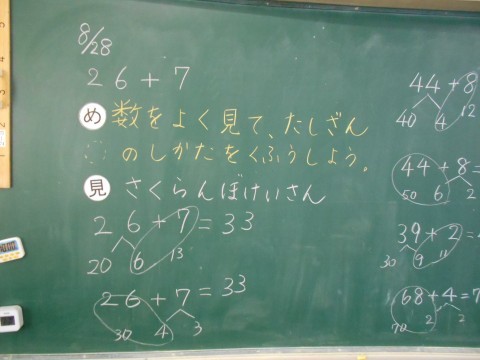 8/28
26+7
め 数をよく見て、たしざん
のしかたをくふうしよう。
見 さくらんぼけいさん
26+7=33
20 6 13
26+7=33
30 4 3
44+8
40 4 12
44+8=
50 6 2
39+2=
30 9 11
68+4=7
70 2 2